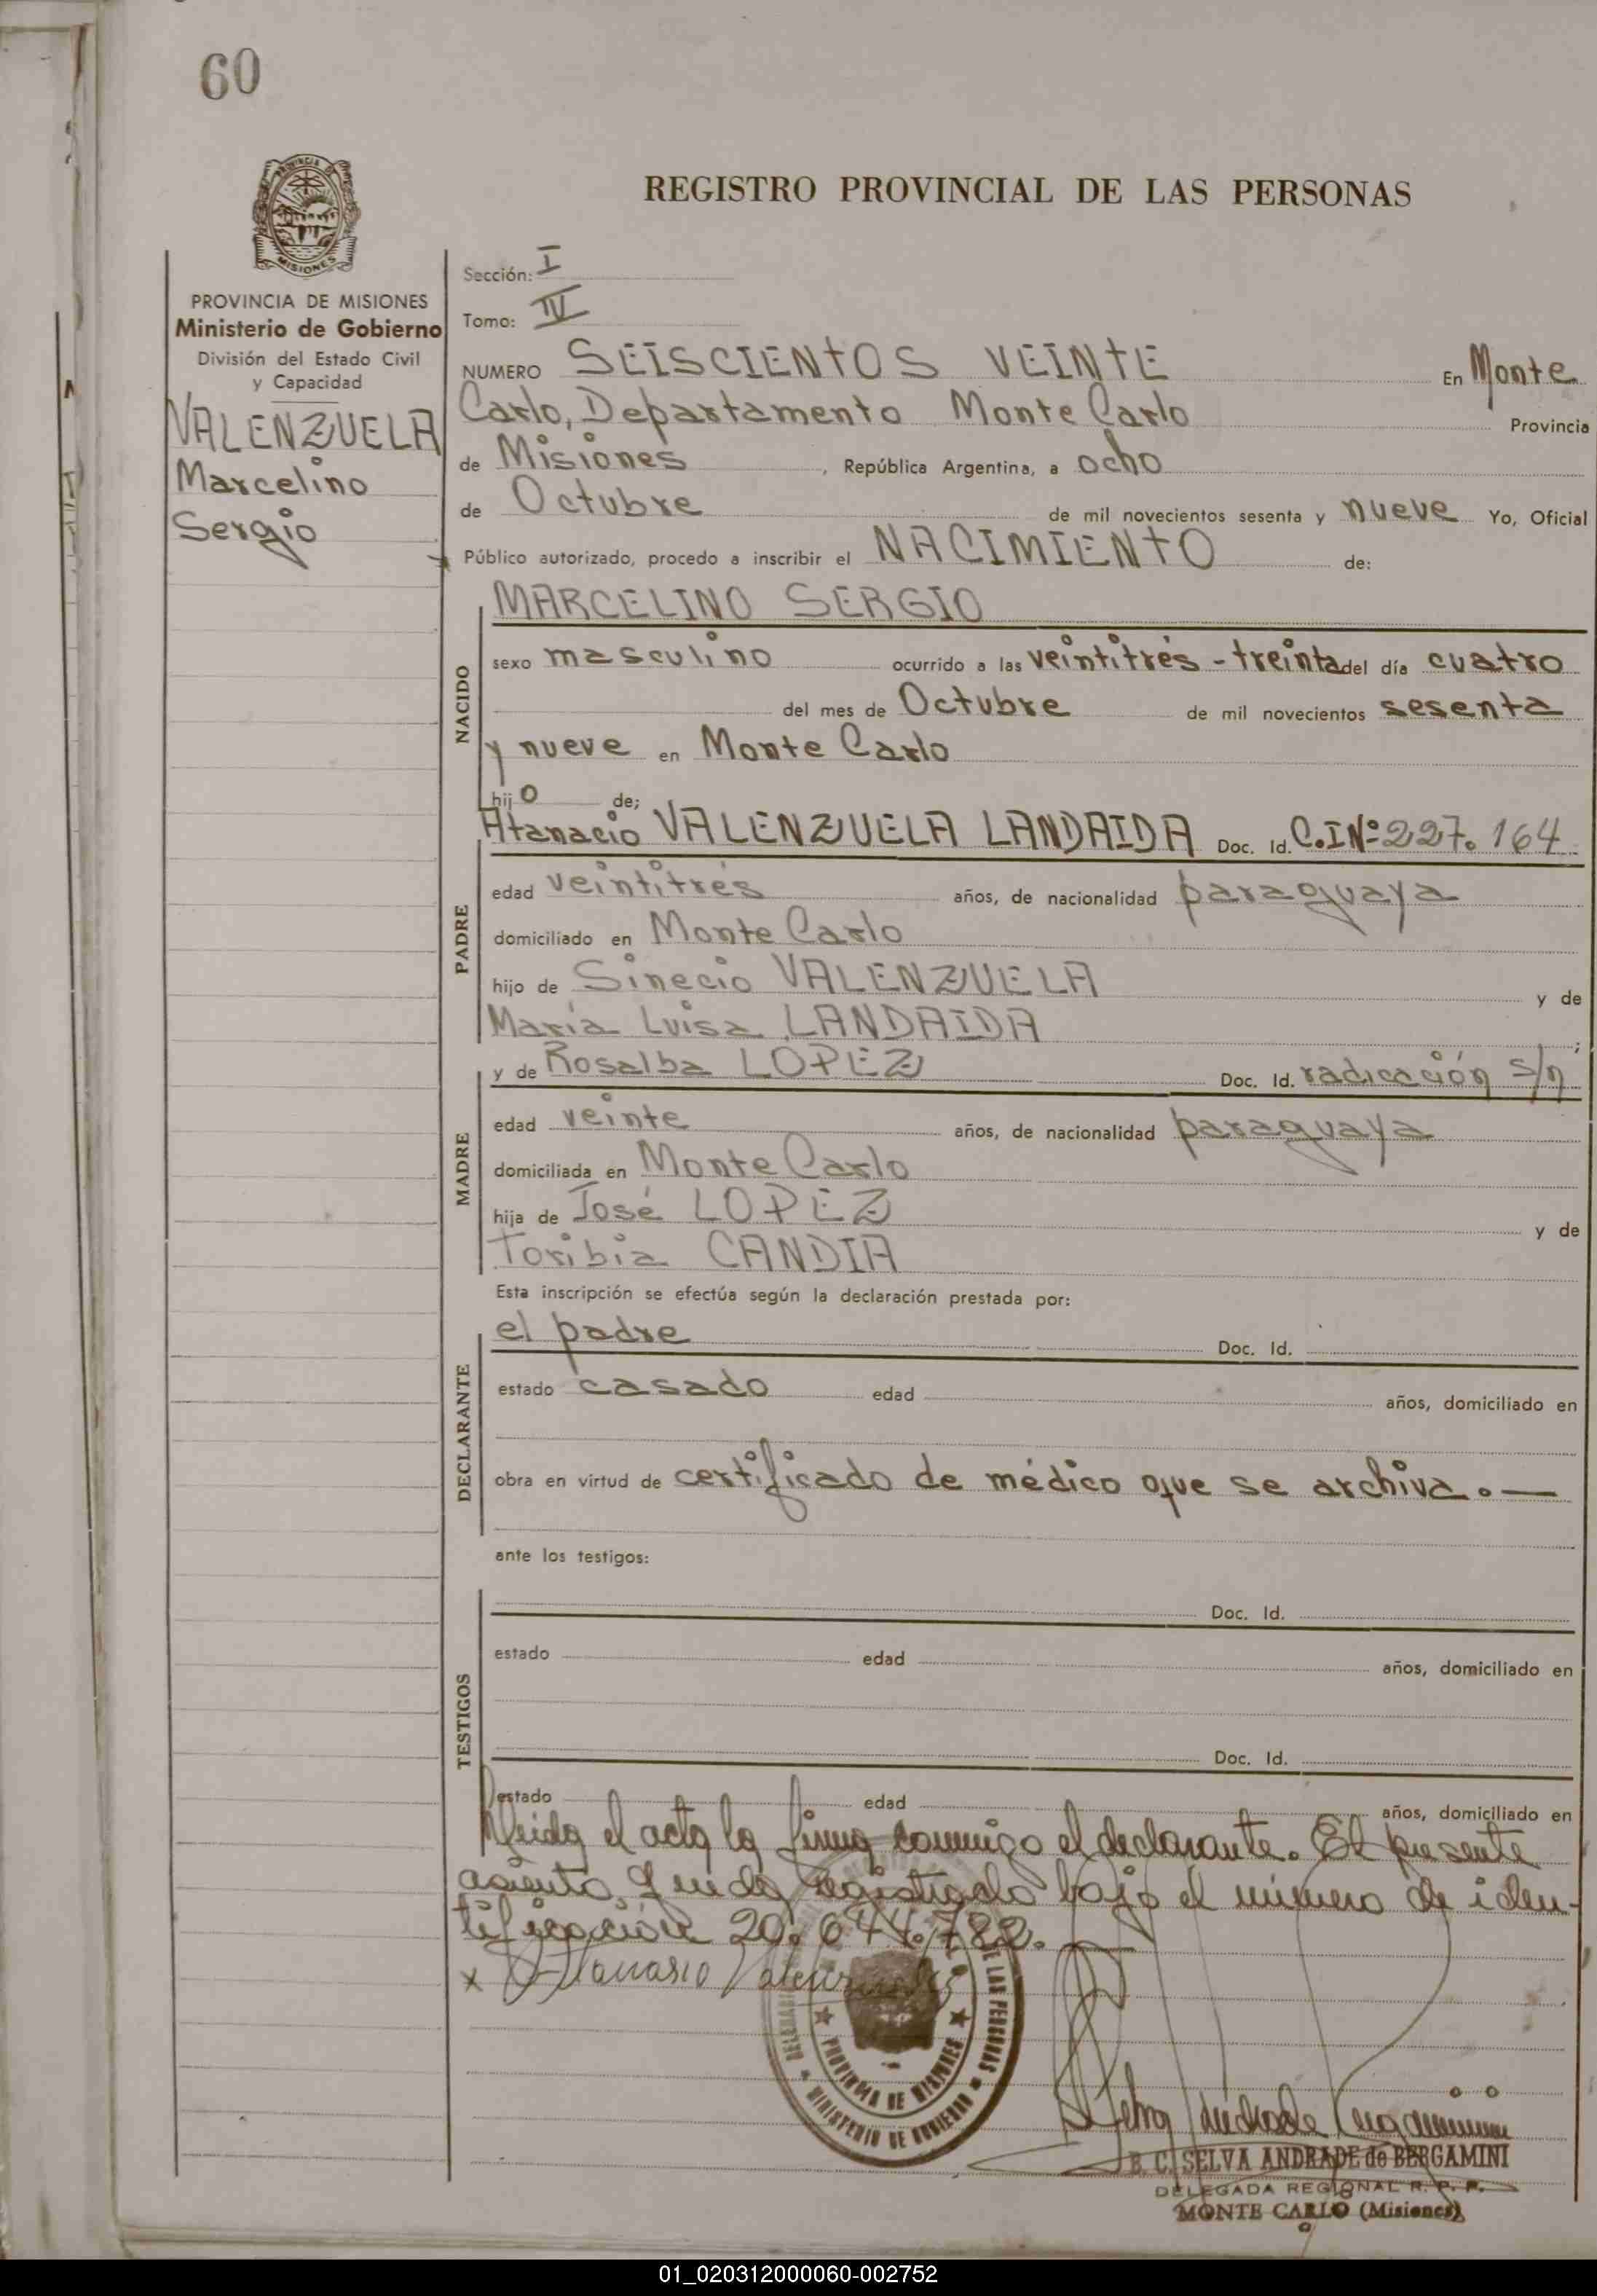 60
PROVINCIA DE
MISIONES
REGISTRO PROVINCIAL DE LAS PERSONAS
PROVINCIA DE MISIONES
Ministerio de Gobierno
División del Estado Civil
y Capacidad
VALENZUELA
Marcelino
Sergio
Sección: I
Tomo: IV
NUMERO SEISCIENTOS VEINTE En Monte
Carlo, Departamento Monte Carlo Provincia
de Misiones, República Argentina, a ocho
de Octubre de mil novecientos sesenta y nueve Yo, Oficial
Público autorizado, procedo a inscribir el NACIMIENTO de:
NACIDO
MARCELINO SERGIO
sexo masculino ocurrido a las veintitrés - treinta del día cuatro
del mes de Octubre de mil novecientos sesenta
y nueve en Monte Carlo
hijo de;
PADRE
Atanacio VALENZUELA LANDAIDA Doc. Id. C.I Nº 227.164
edad veintitrés años, de nacionalidad paraguaya
domiciliado en Monte Carlo
hijo de Sinecio VALENZUELA y de
María Luisa LANDAIDA ;
MADRE
y de Rosalba LOPEZ Doc. Id. radicación s/n
edad veinte años, de nacionalidad paraguaya
domiciliada en Monte Carlo
hija de José LOPEZ y de
Toribia CANDIA
Esta inscripción se efectúa según la declaración prestada por:
DECLARANTE
el padre Doc. Id.
estado casado edad años, domiciliado en
obra en virtud de certificado de médico que se archiva. —
ante los testigos:
TESTIGOS
Doc. Id.
estado edad años, domiciliado en
Doc. Id.
estado edad años, domiciliado en
Leida el acta la firma conmigo el declarante. El presente
asiento, queda registrado bajo el número de iden-
tificación 20.644.782.
x Atanasio Valenzuela
DE LAS PERSONAS
PROVINCIA DE MISIONES
MINISTERIO DE GOBIERNO
Selva Andrade Bergamini
B. C. SELVA ANDRADE de BERGAMINI
DELEGADA REGIONAL R. P. P.
MONTE CARLO (Misiones)
01_020312000060-002752